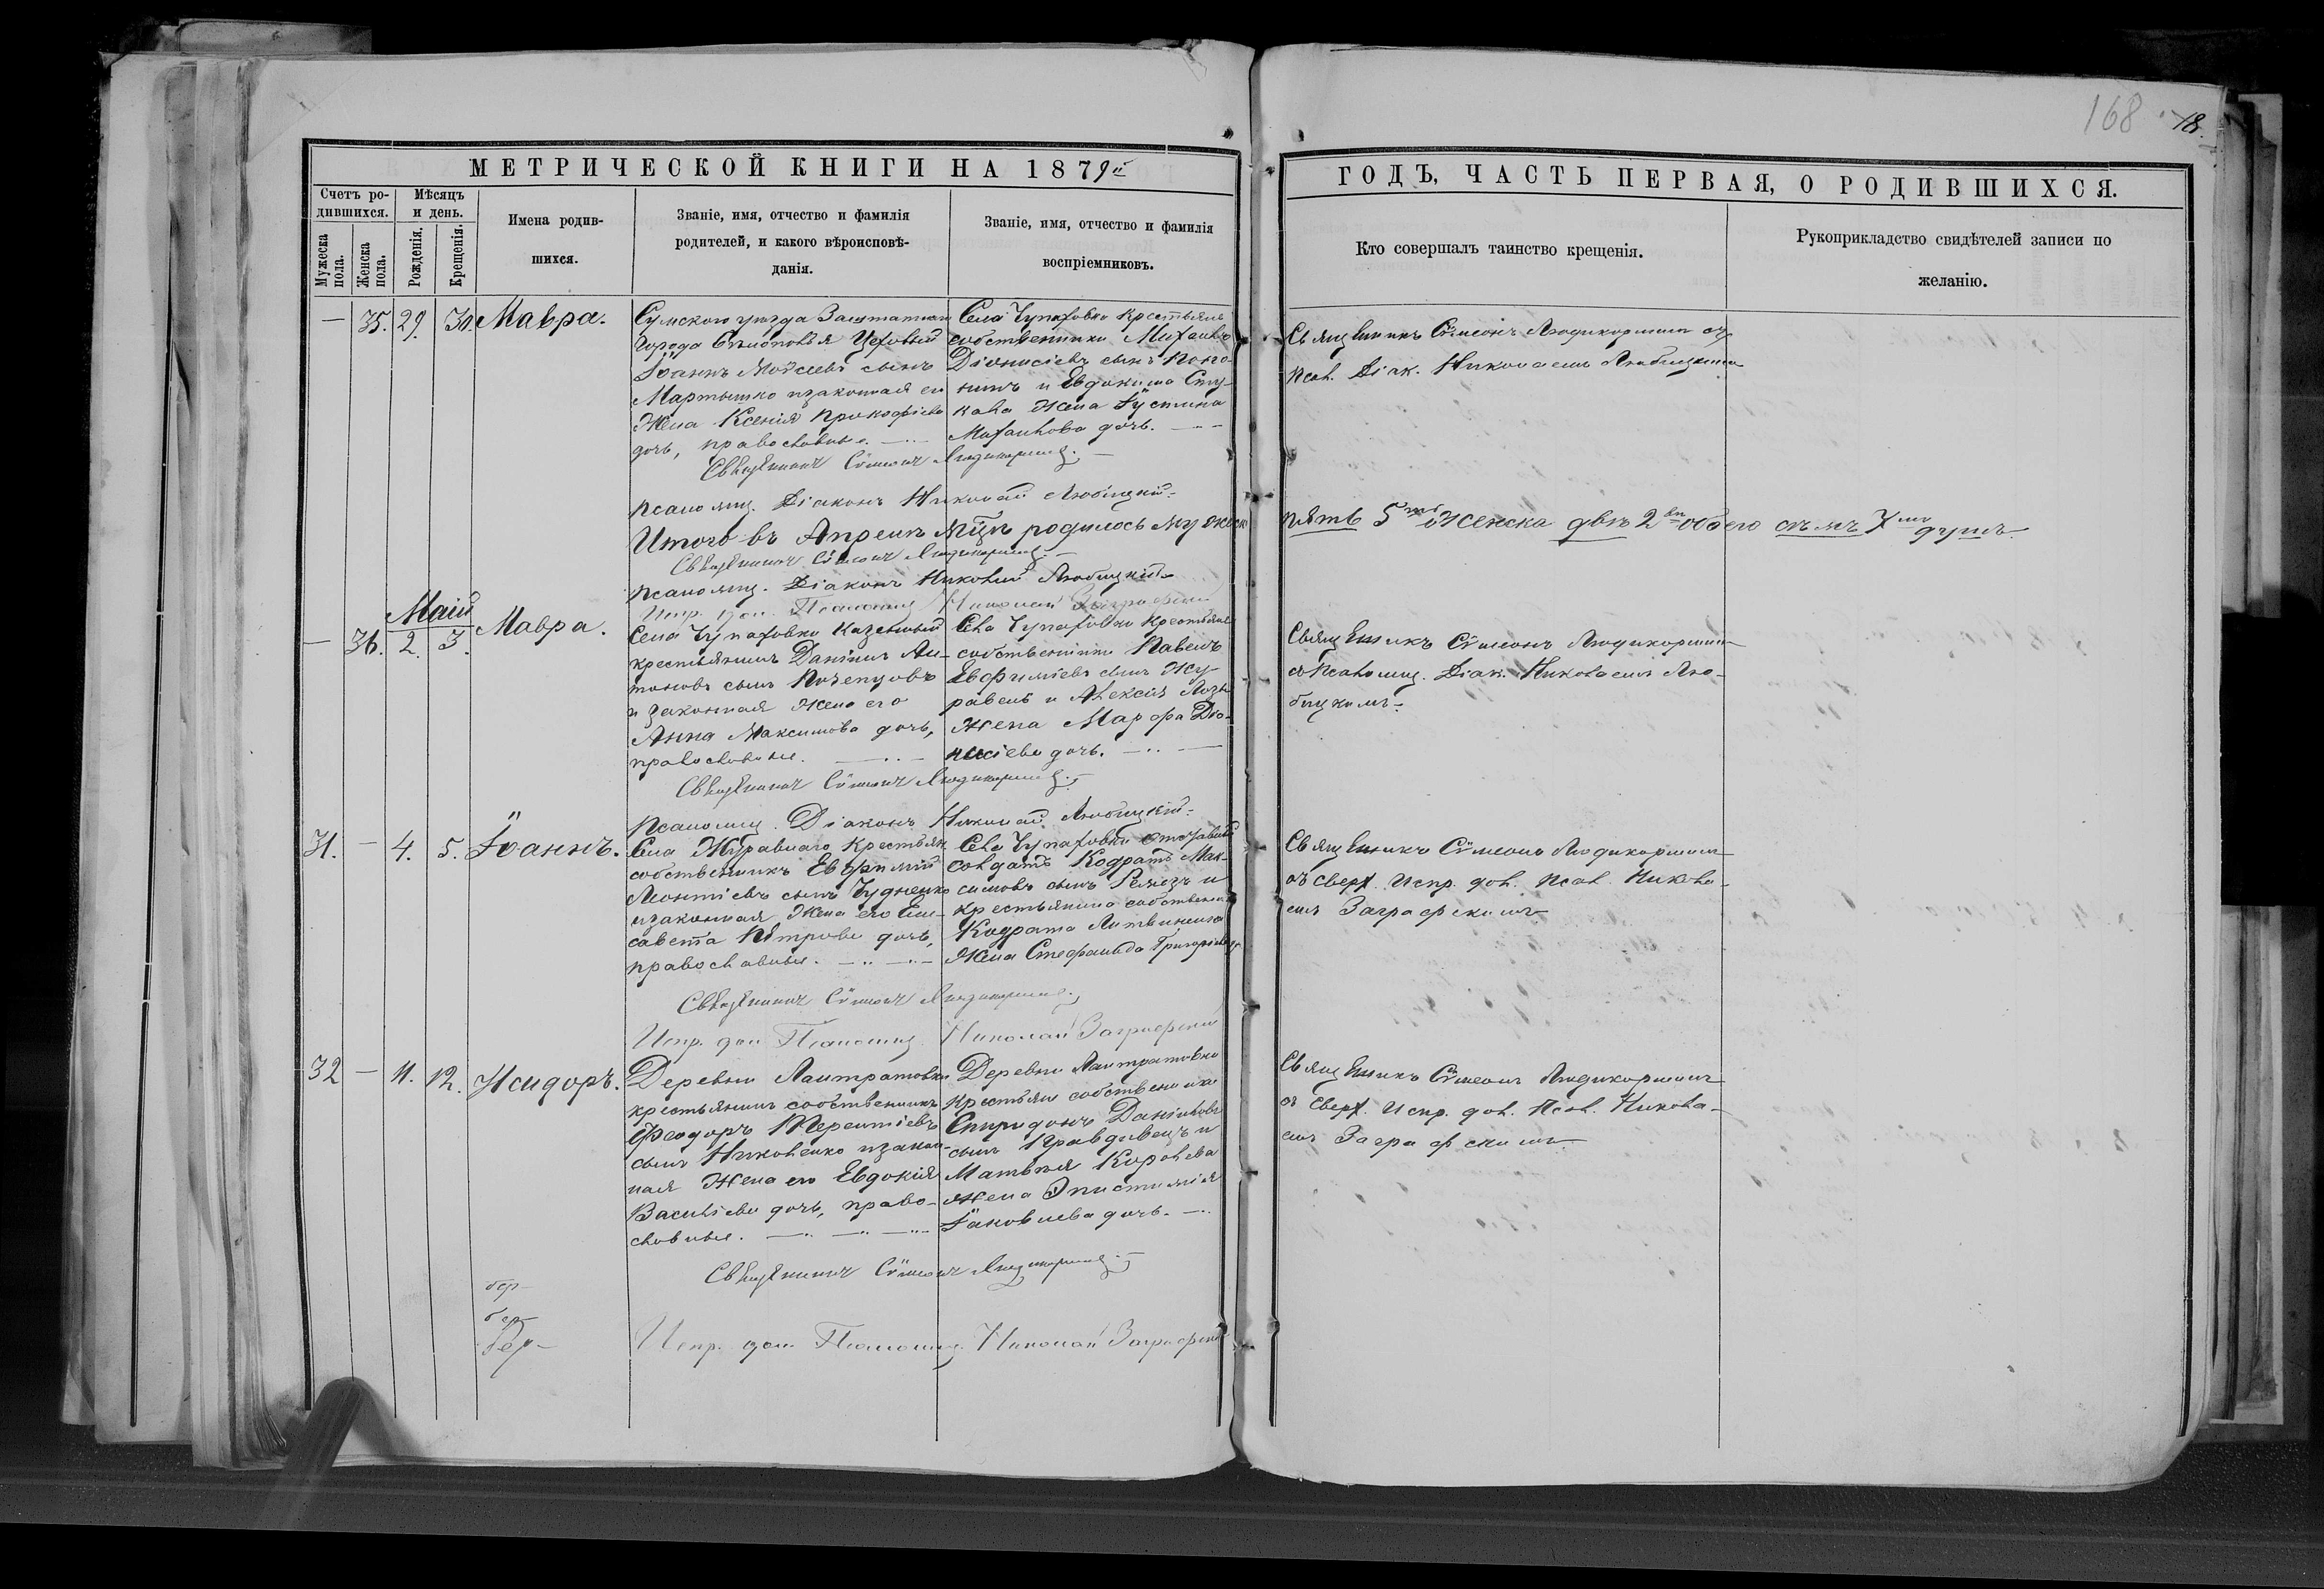 168 18.
МЕТРИЧЕСКОЙ КНИГИ НА 1879й
ГОДЪ, ЧАСТЬ ПЕРВАЯ, О РОДИВШИХСЯ.
Счетъ ро-
дившихся.
Мужеска пола.
Женска пола.
Мѣсяцъ
и день.
Рожденія.
Крещенія.
Имена родив-
шихся.
Званіе, имя, отчество и фамилія
родителей, и какого вѣроисповѣ-
данія.
Званіе, имя, отчество и фамилія
воспріемниковъ.
Кто совершалъ таинство крещенія.
Рукоприкладство свидѣтелей записи по
желанію.
— 35. 29. 30. Мавра.
Сумского уѣзда Заштатнаго
города Бѣлополья Цеховый
Іоаннъ Моѵсеевъ сынъ
Мартышко и законная его
жена Ксенія Прокофіева
дочь, православные.
Села Чупаховки крестьяне
собственники Михаилъ
Діонисіевъ сынъ
и Евдокима
жена Іустина
Михаилова дочь.
Священникъ Сѵмеонъ
Псал. Діак. Николаемъ Любицкимъ
Священникъ Сѵмеонъ
Псаломщ. Діаконъ Николай Любицкій.
Итого въ Апрелѣ Мцѣ родилось мужеска
пять 5ть женска двѣ 2вѣ обоего семь 7мь душъ.
Священникъ Сѵмеонъ
Псаломщ. Діаконъ Николай Любицкій
Испр. дол. Псаломщ. Николай Заграфскій
Маій
— 36. 2. 3. Мавра.
Села Чупаховки казенный
крестьянинъ Даніилъ Ан-
тоновъ сынъ
и законная жена его
Анна Максимова дочь,
православные.
Села Чупаховки крестьяне
собственники Павелъ
Евфиміевъ сынъ Жу-
равель и Алексія
жена Марфа Діо-
нисіева дочь.
Священникъ Сѵмеонъ
съ Псаломщ. Діак. Николаемъ Лю-
бицкимъ.
Священникъ Сѵмеонъ
Псаломщ. Діаконъ Николай Любицкій.
31. — 4. 5. Іоаннъ.
Села Журавнаго крестьян.
собственникъ Евфимій
Леонтіевъ сынъ Чудненко
и законная жена его Ели-
савета Петрова дочь,
православные.
Села Чупаховки отставный
солдатъ Кодратъ Мак-
симовъ сынъ и
крестьянина собственника
Кодрата Литвиненка
жена Стефанида Григоріева
Священникъ Сѵмеонъ
съ сверх. испр. дол. Псал. Никола-
емъ Заграфскимъ
Священникъ Сѵмеонъ
Испр. дол. Псаломщ. Николай Заграфскій
32 — 11. 12. Исидоръ.
Деревни
крестьянинъ собственникъ
Феодоръ Терентіевъ
сынъ Николенко и закон-
ная жена его Евдокія
Васильева дочь, право-
славные.
Деревни
крестьяне собственники
Спиридонъ Даніиловъ
сынъ Правдивецъ и
Матвея Королева
жена Эпистимія
Іаковлева дочь.
Священникъ Сѵмеонъ
съ сверх. испр. дол. Псал. Никола-
емъ Заграфскимъ
Священникъ Сѵмеонъ
Испр. дол. Псаломщ. Николай Заграфскій